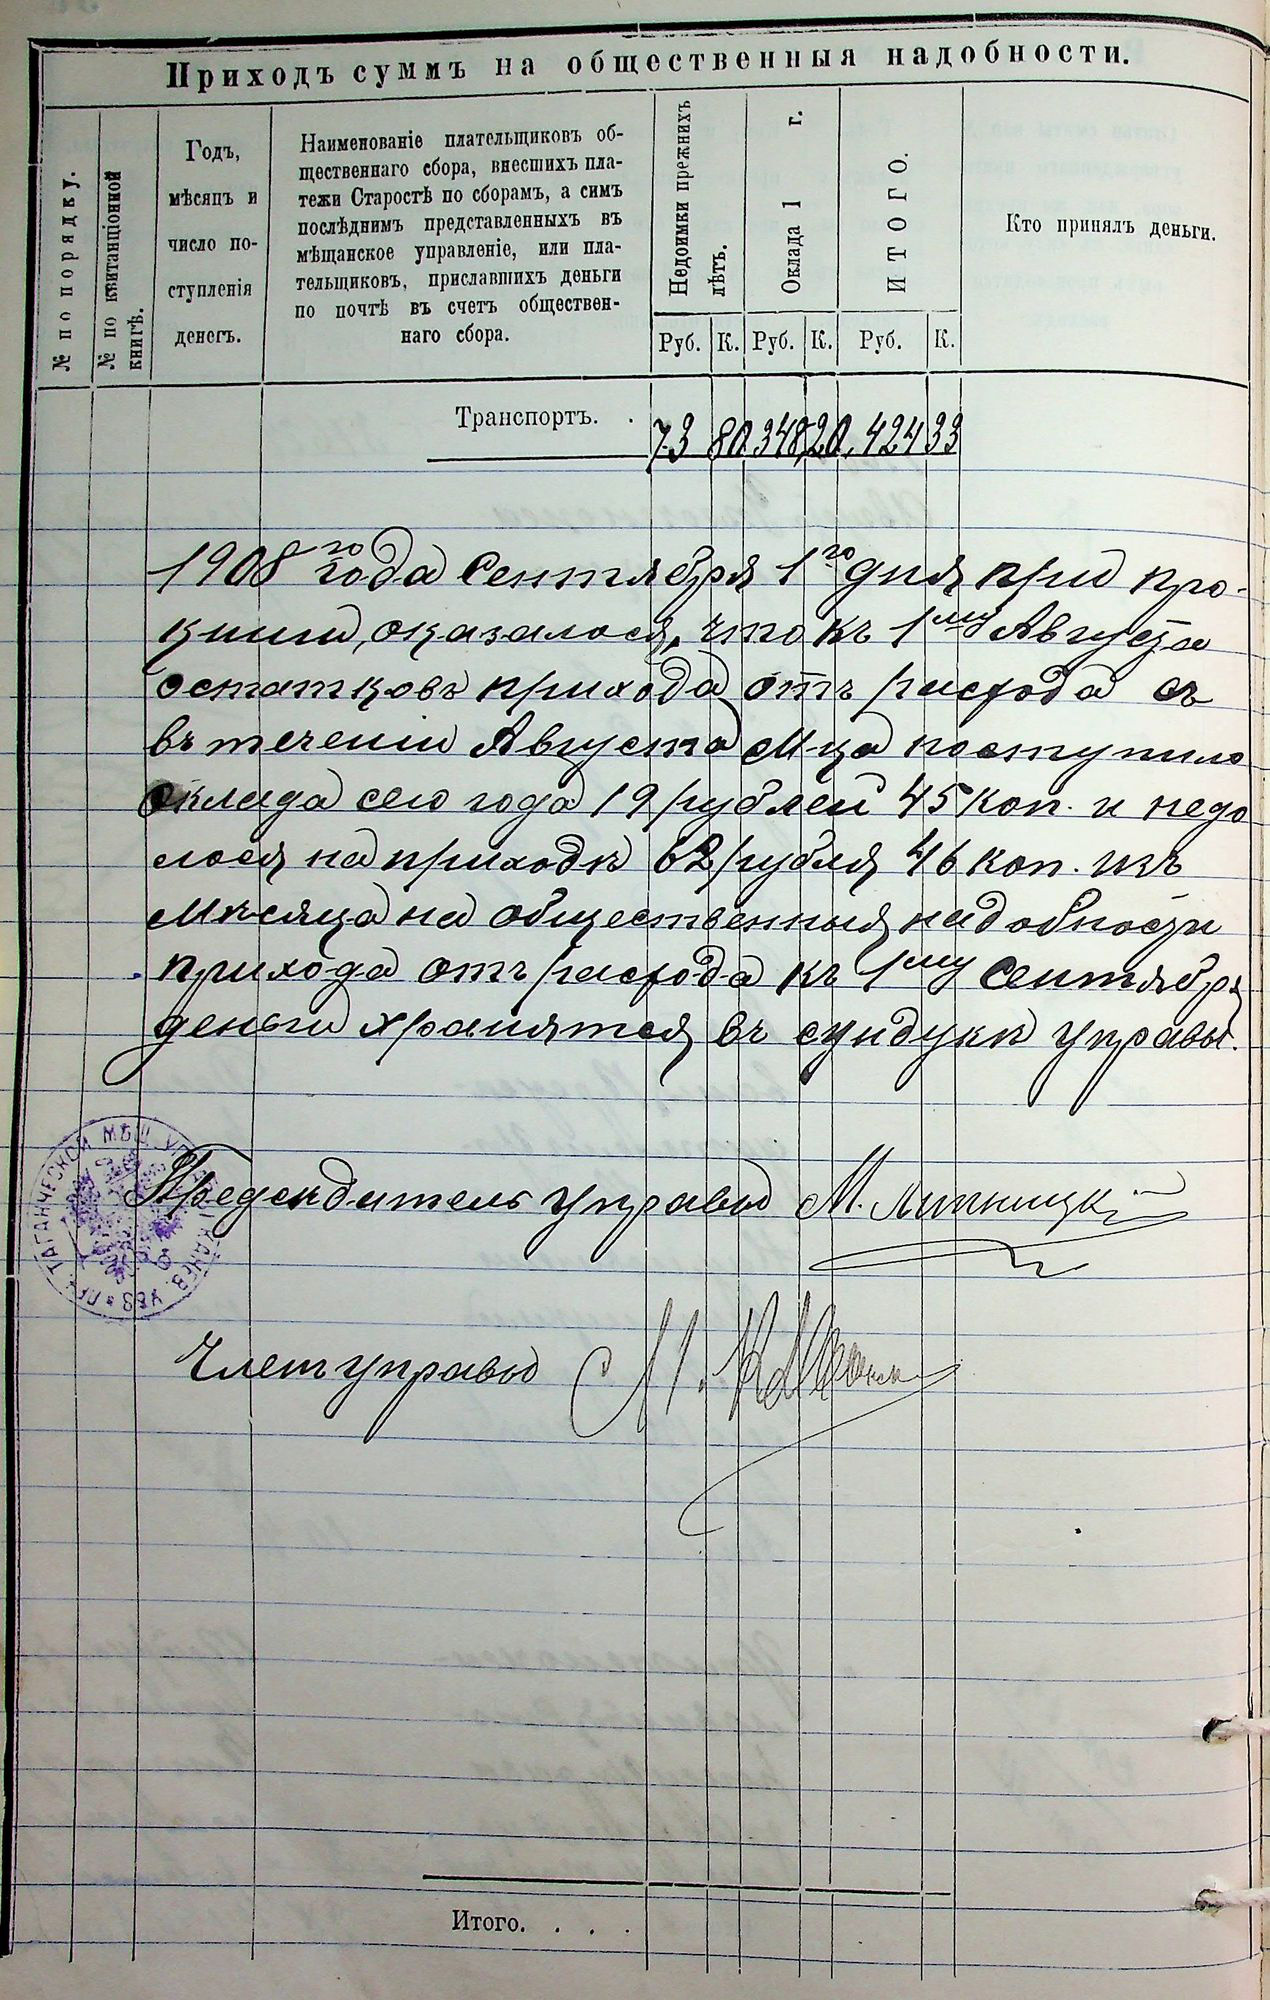 Приходъ суммъ на общественныя надобности.
№ по порядку.
№ по квитанціонной
книгѣ.
Годъ,
мѣсяцъ и
число по-
ступленія
денегъ.
Наименованіе плательщиковъ об-
щественнаго сбора, внесшихъ пла-
тежи Старостѣ по сборамъ, а симъ
послѣднимъ представленныхъ въ
мѣщанское управленіе, или пла-
тельщиковъ, приславшихъ деньги
по почтѣ въ счетъ обществен-
наго сбора.
Недоимки прежнихъ
лѣтъ.
Оклада 1 г.
ИТОГО.
Кто принялъ деньги.
Руб. К. Руб. К. Руб. К.
Транспортъ. . 73 80 348 20 424 33
1908го года Сентября 1го дня при про-
оказалося, что къ 1му Августа
остатковъ прихода отъ расхода съ
въ теченіи Августа М-ца поступило
оклада сего года 19 рублей 45 коп. и недо
лося на приходѣ 62 рубля 46 коп. изъ
Мѣсяца на общественныя надобности
прихода отъ расхода къ 1му Сентябр
деньги хранятся въ сундукѣ управы.
Предсѣдатель управы М. Липницкі
Членъ управы М.
Итого. . . .